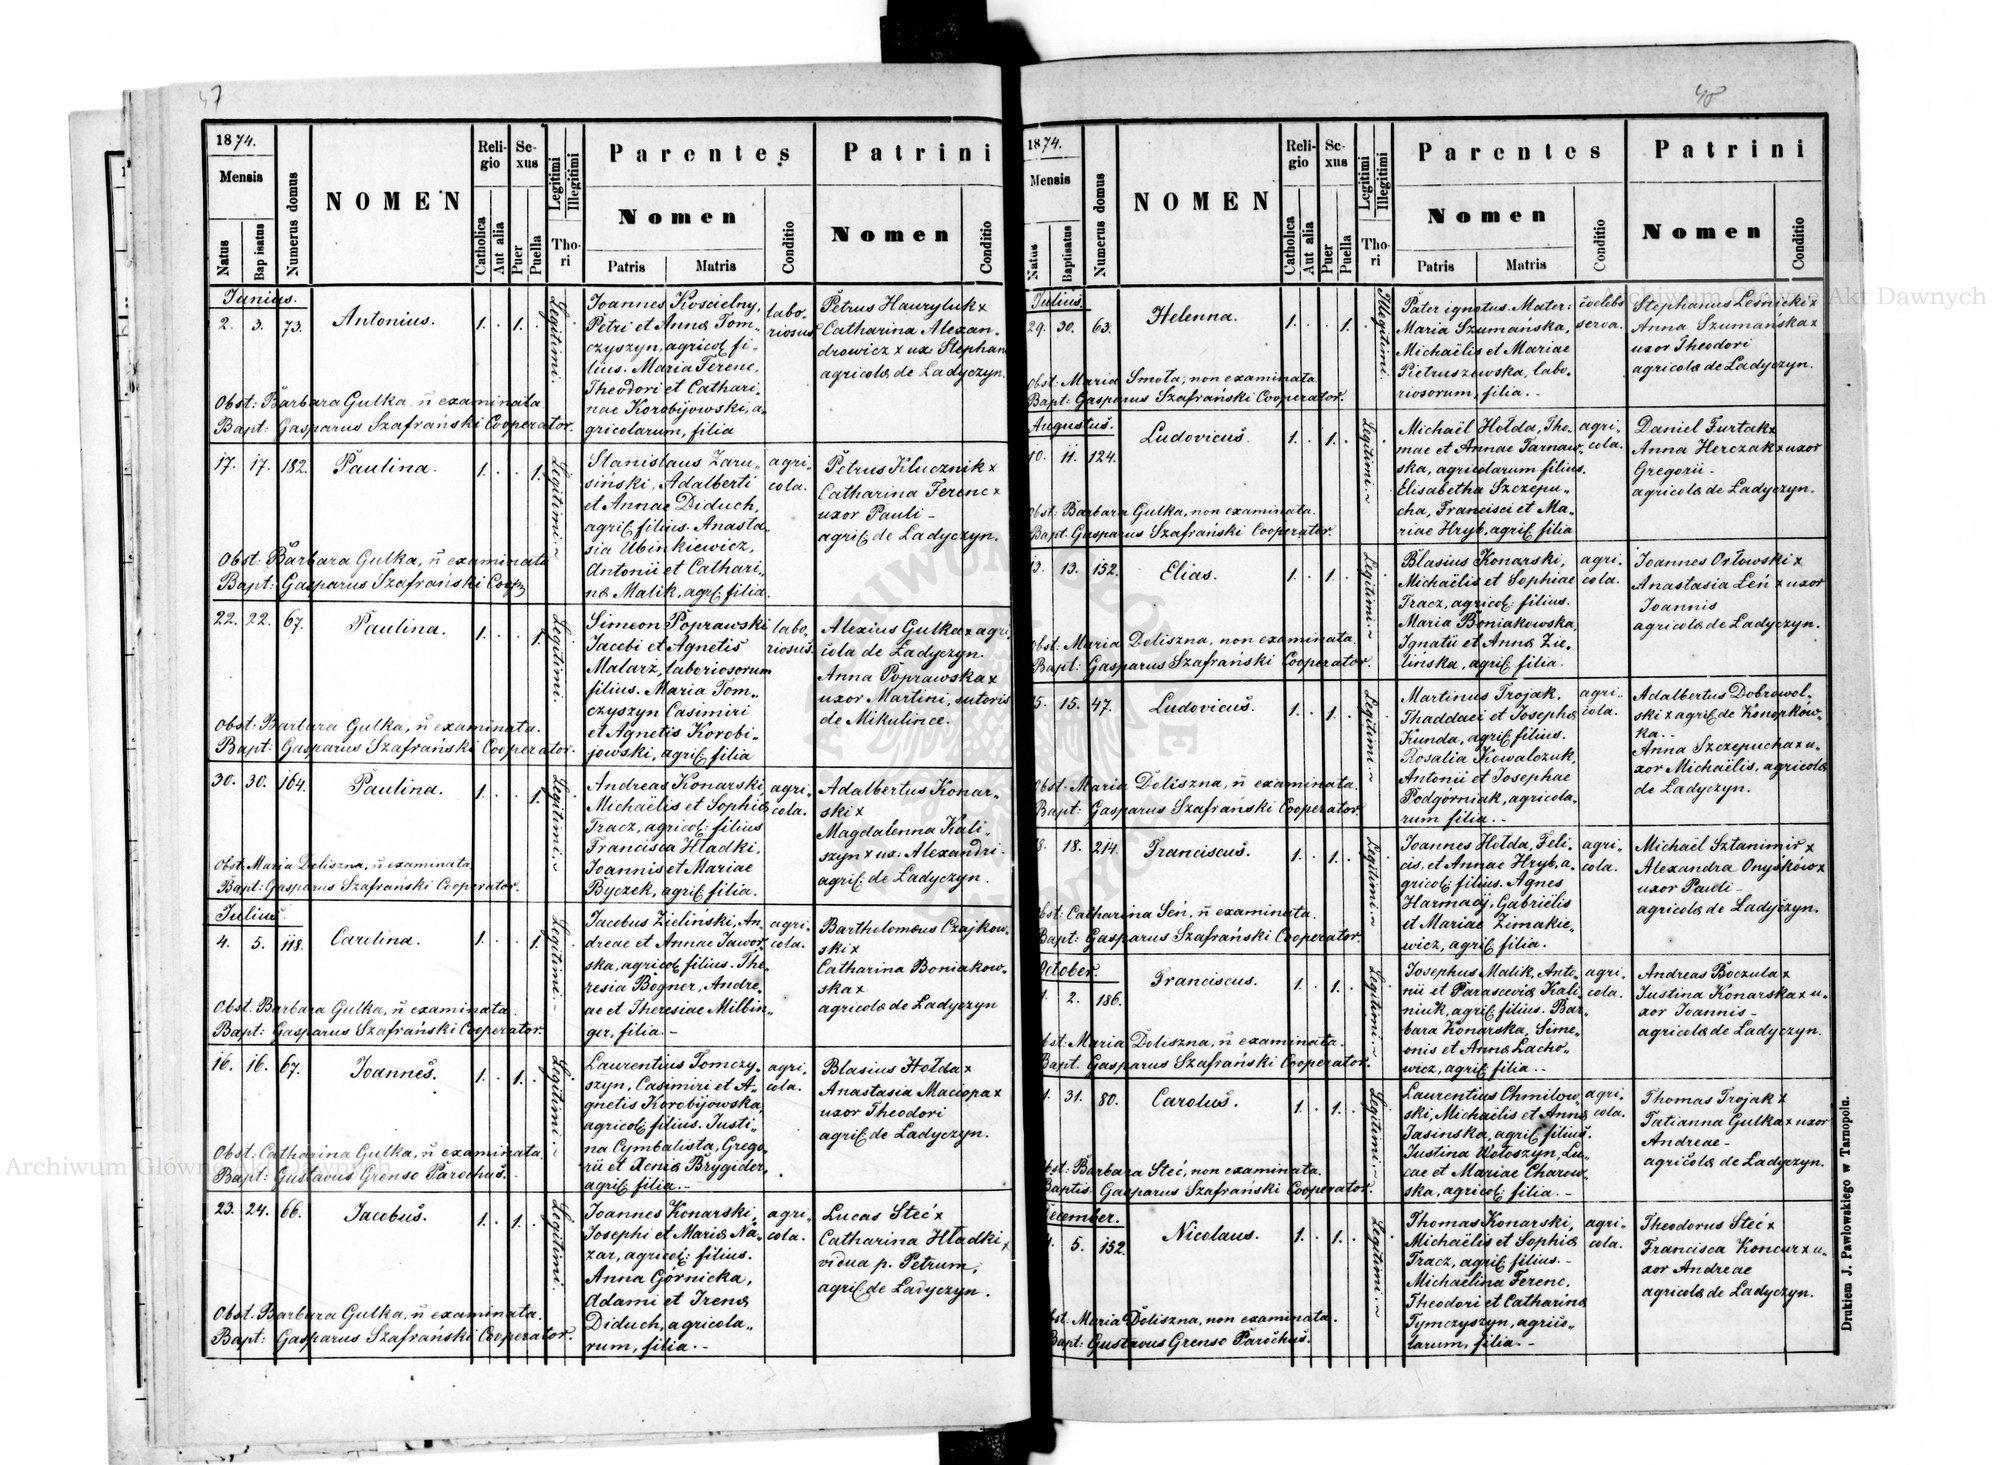 47
1874.
Mensis
Natus
Bap isatus
Numerus domus
NOMEN
Religio
Catholica
Aut alia
Sexus
Puer
Puella
Legitimi
Illegitimi
Thori
Parentes
Nomen
Patris
Matris
Conditio
Patrini
Nomen
Conditio
Junius.
2. 3. 73. Antonius. 1. . 1. . Legitimi.
Joannes Kościelny,
Petri et Annæ Tom„
czyszyn, agricol fi„
lius. Maria Ferenc,
Theodori et Cathari„
nae Korobijowski, a„
gricolarum, filia
labo„
riosus.
Petrus Hauryluk x
Catharina Alexan„
drowicz x ux: Stephan
agricolæ de Ladyczyn.
Obst: Barbara Gulka, ñ examinata
Bapt: Gasparus Szafrański Cooperator.
17. 17. 182. Paulina. 1. . . 1. Legitimi.
Stanislaus Zaru„
siński, Adalberti
et Annae Diduch,
agric. filius. Anasta„
sia Ubinkiewicz,
Antonii et Cathari„
næ Malik, agric: filia.
agri„
cola.
Petrus Klucznik x
Catharina Ferenc x
uxor Pauli –
agric. de Ladyczyn.
Obst: Barbara Gulka, ñ examinata
Bapt: Gasparus Szafrański Coop
22. 22. 67. Paulina. 1. . . 1. Legitimi.
Simeon Poprawski
Jacobi et Agnetis
Malarz, laboriosorum
filius. Maria Tom„
czyszyn Casimiri
et Agnetis Korobi„
jowski, agric. filia
labo„
riosus.
Alexius Gulka x agri„
cola de Ladyczyn.
Anna Poprawska x
uxor Martini, sutoris
de Mikulince.
Obst: Barbara Gulka, ñ examinata.
Bapt: Gasparus Szafrański Cooperator.
30. 30. 164. Paulina. 1. . . 1. Legitimi.
Andreas Konarski,
Michaëlis et Sophiæ
Tracz, agricol: filius
Francisca Hładki,
Joannis et Mariae
Byczek, agric. filia.
agri„
cola.
Adalbertus Konar„
ski x
Magdalenna Kali„
szyn x ux: Alexandri –
agric: de Ladyczyn.
Obst: Maria Doliszna, ñ examinata
Bapt: Gasparus Szafrański Cooperator.
Julius.
4. 5. 118. Carolina. 1. . . 1. Legitimi.
Jacobus Zieliński, An„
dreae et Annae Jawor„
ska, agricol filius. The„
resia Bogner, Andre„
ae et Theresiae Milbin„
ger, filia. –
agri„
cola.
Bartholomeus Czajkow„
ski x
Catharina Boniakow„
ska x
agricolæ de Ladyczyn
Obst. Barbara Gulka, ñ examinata.
Bapt: Gasparus Szafrański Cooperator.
16. 16. 67. Joannes. 1. . 1. . Legitimi.
Laurentius Tomczy„
szyn, Casimiri et A„
gnetis Korobijowska,
agricol filius. Justi„
na Cymbalista, Grego„
rii et Xeniæ Brygider,
agric. filia. –
agri„
cola.
Blasius Hołda x
Anastasia Maciopa x
uxor Theodori
agric. de Ladyczyn.
Obst: Catharina Gulka, ñ examinata.
Bapt: Gustavus Grenso Parochus.
23. 24. 66. Jacobus. 1. . 1. . Legitimi.
Joannes Konarski,
Josephi et Mariæ Na„
zar, agricol: filius.
Anna Górnicka,
Adami et Irenæ
Diduch, agricola„
rum, filia. –
agri„
cola.
Lucas Steć x
Catharina Hładki x
vidua p. Petrum,
agric. de Ladyczyn.
Obst. Barbara Gulka, ñ examinata.
Bapt: Gasparus Szafrański Cooperator.
48
1874.
Mensis
Natus
Baptisatus
Numerus domus
NOMEN
Religio
Catholica
Aut alia
Sexus
Puer
Puella
Legitimi
Illegitimi
Thori
Parentes
Nomen
Patris
Matris
Conditio
Patrini
Nomen
Conditio
Julius.
29. 30. 63. Helenna. 1. . . 1. Illegitimi.
Pater ignotus. Mater:
Maria Szumańska,
Michaëlis et Mariae
Pietruszewska, labo„
riosorum, filia. –
coelebs
serva.
Stephanus Leśnicki x
Anna Szumańska x
uxor Theodori
agricolæ de Ladyczyn.
Obst: Maria Smoła, non examinata
Bapt: Gasparus Szafrański Cooperator.
Augustus.
10. 11. 124. Ludovicus. 1. . 1. . Legitimi.
Michaël Hołda, Tho„
mae et Annae Tarnaw„
ska, agricolarum filius.
Elisabetha Szczepu„
cha, Francisci et Ma„
riae Hryb, agric. filia
agri„
cola.
Daniel Furtak x
Anna Herczak x uxor
Gregorii –
agricolæ de Ladyczyn.
Obst: Barbara Gulka, non examinata.
Bapt: Gasparus Szafrański Cooperator.
13. 13. 152. Elias. 1. . 1. . Legitimi.
Blasius Konarski,
Michaëlis et Sophiae
Tracz, agricol: filius.
Maria Boniakowska,
Ignatii et Annæ Zie„
lińska, agric. filia.
agri„
cola.
Joannes Orłowski x
Anastasia Leń x uxor
Joannis
agricolæ de Ladyczyn.
Obst: Maria Doliszna, non examinata.
Bapt: Gasparus Szafrański Cooperator.
15. 15. 47. Ludovicus. 1. . 1. . Legitimi.
Martinus Trojak,
Thaddaei et Josephæ
Kunda, agric. filius.
Rosalia Kowalczuk,
Antonii et Josephae
Podgórniak, agricola„
rum filia. –
agri„
cola.
Adalbertus Dobrowol„
ski x agric. de Konopków„
ka. –
Anna Szczepucha x u„
xor Michaëlis, agricolæ
de Ladyczyn.
Obst: Maria Doliszna, ñ examinata.
Bapt: Gasparus Szafrański Cooperator
18. 18. 214. Franciscus. 1. . 1. . Legitimi.
Joannes Hołda, Feli„
cis, et Annae Hryb, a„
gricol: filius. Agnes
Harmaój, Gabriëlis
et Mariae Zimakie„
wicz, agric. filia.
agri„
cola.
Michaël Sztanimir x
Alexandra Onysków x
uxor Pauli –
agricolæ de Ladyczyn.
Obst: Catharina Seń, ñ examinata.
Bapt: Gasparus Szafrański Cooperator.
October.
1. 2. 186. Franciscus. 1. . 1. . Legitimi.
Josephus Malik, Anto„
nii et Parasceviæ Kali„
niuk, agric. filius. Bar„
bara Konarska, Sime„
onis et Annæ Lacho„
wicz, agric. filia. –
agri„
cola.
Andreas Boczula x
Justina Konarska x u„
xor Joannis –
agricolæ de Ladyczyn.
Obst: Maria Doliszna, ñ examinata.
Bapt: Gasparus Szafrański Cooperator.
31. 80. Carolus. 1. . 1. . Legitimi.
Laurentius Chmilow„
ski, Michaëlis et Annæ
Jasinska, agric. filius.
Justina Wołoszyn, Lu„
cae et Mariae Charow„
ska, agricol: filia. –
agri„
cola.
Thomas Trojak x
Tatianna Gulka x uxor
Andreae –
agricolæ de Ladyczyn.
Obst: Barbara Steć, non examinata.
Baptis. Gasparus Szafrański Cooperator.
December.
5. 152. Nicolaus. 1. . 1. . Legitimi.
Thomas Konarski,
Michaëlis et Sophiæ
Tracz, agric. filius. –
Michaëlina Ferenc,
Theodori et Catharinæ
Tymczyszyn, agrico„
larum, filia. –
agri„
cola.
Theodorus Steć x
Francisca Koncur x u„
xor Andreae
agricolæ de Ladyczyn.
Obst: Maria Doliszna, non examinata.
Bapt: Gustavus Grenso Parochus.
Drukiem J. Pawłowskiego w Tarnopolu.
Archiwum Główne Akt Dawnych
Archiwum Główne Akt Dawnych
ARCHIWUM GŁÓWNE AKT DAWNYCH